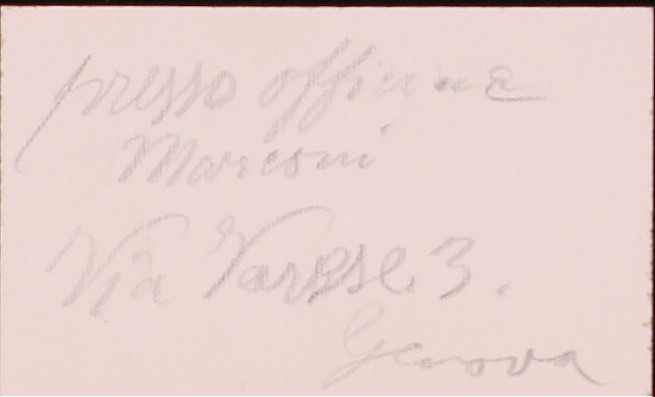 presso officine
Marconi
Via Varese 3.
Genova